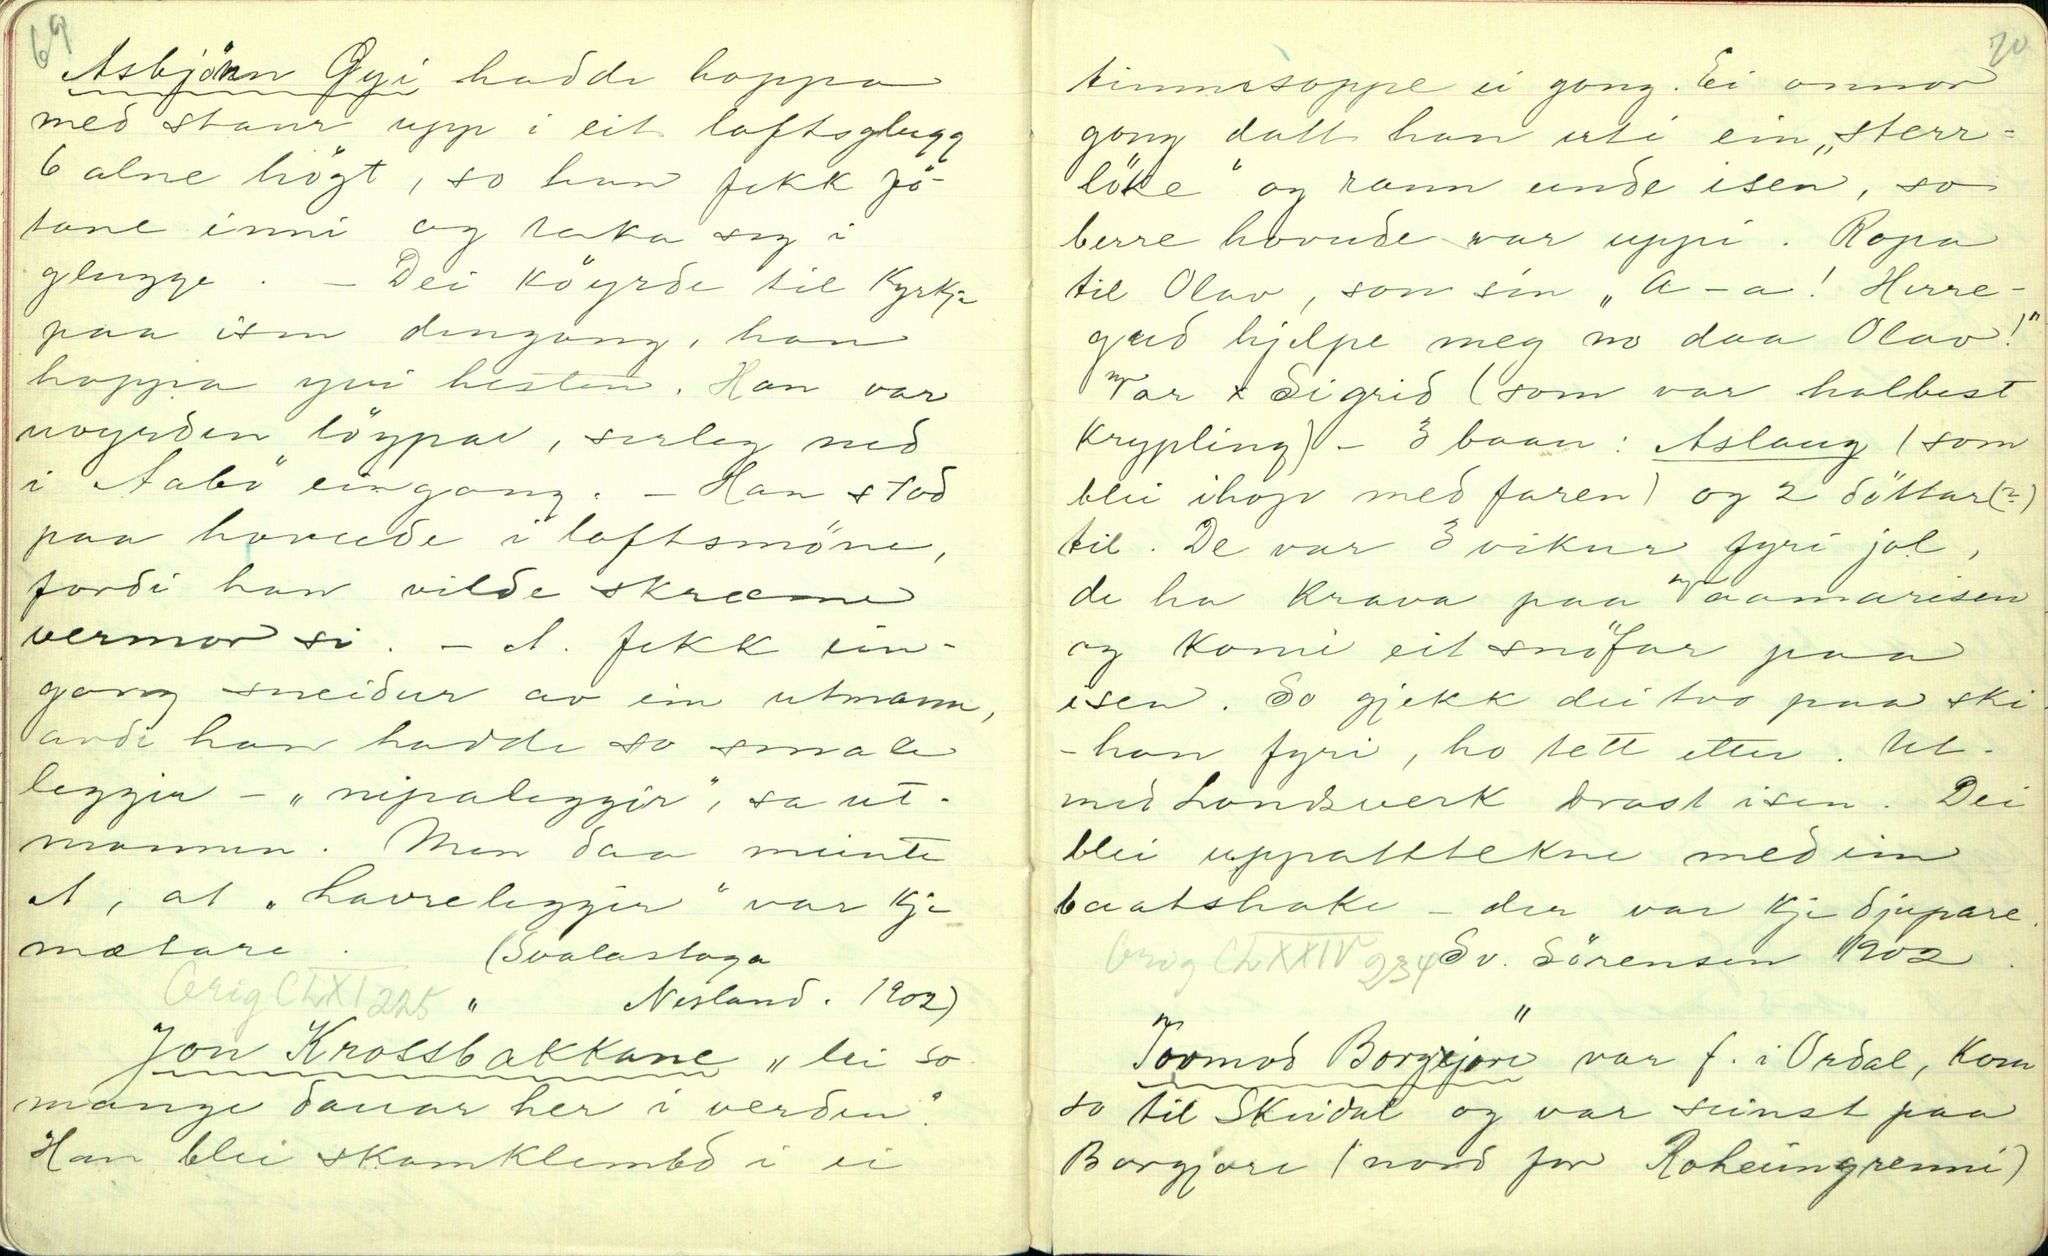 69
Asbjörn Öyi hadde hoppa
med staur upp i eit loftsglugg
6 alne högt, so han fekk fö-
tane inni og taka seg i
glugge. – Dei köyrde til Kyrkje
paa isen dengong, han
hoppa yvi hesten. Han var
uvyrden löypar, serleg ned
i Aabö eingong. – Han stod
paa hovude i loftsmöne,
fordi han vilde skræme
vermor si. – A. fekk ein-
gong sneidur av ein utmann,
avdi han hadde so smale
leggjir – „nipaleggjir", sa ut-
mannen. Men daa meinte
A, at „havreleggjir" var kje
mætare. (Svalastoga
Orig CLXI 225 " Nesland. 1902)
Jon Krossbakkane „lei so
mange dauar her i verden".
Han blei skamklembd i ei
70
timmrsoppe ei gong. Ei annor
gong datt han uti ein „sterr-
löke" og rann unde isen, so
berre hovude var uppi. Ropa
til Olav, son sin „A – a! Herre-
gud hjelpe meg no daa Olav!"
Tar x Sigrid (som var halbest
Krypling) – 3 baan: Aslaug (som
blei ihop med faren) og 2 döttar(?)
til. De var 3 vikur fyri jol,
de ha krava paa Vaamarisen
og komi eit snöfar paa
isen. So gjekk dei tvo paa ski
– han fyri, ho tett etter. Ut-
med Landsverk brast isen. Dei
blei uppatttekne med ein
baatshake – der var kje djupare.
Orig CLXXIV 234 Sv. Sörensen 1902.
"
Tormod Borgejore var f. i Ordal, kom
so til Skeidal og var seinst paa
Borgjore (nord for Roheimgrenni)